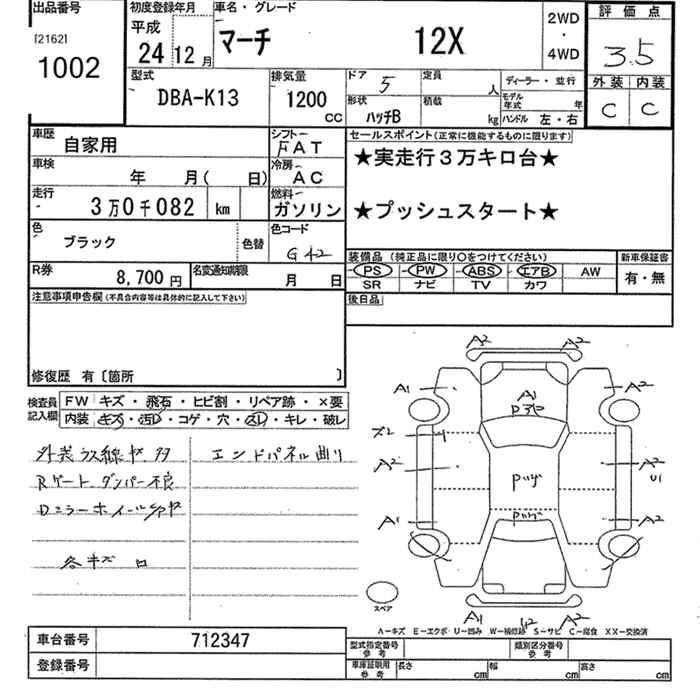 出品番号
[2162]
1002
初度登録年月
平成
24 12月
車名・グレード
マーチ 12X
2WD
・
4WD
評価点
3.5
外装 内装
C C
型式
DBA-K13
排気量
1200
cc
ドア 5
形状
ハッチB
定員 人
積載 kg
ディーラー・並行
モデル年式 年
ハンドル 左・右
車歴 自家用
シフト FAT
車検 年 月( 日)
冷房 AC
走行 3万0千082 km
燃料 ガソリン
色 ブラック 色替
色コード G42
R券 8,700円
名変通知期限 月 日
セールスポイント(正常に機能するものに限ります)
★実走行3万キロ台★
★プッシュスタート★
装備品(純正品に限り○をつけてください)
新車保証書
PS PW ABS エアB AW
SR ナビ TV カワ
有・無
後日品
注意事項申告欄(不具合内容等は具体的に記入して下さい)
修復歴 有〔箇所 〕
検査員記入欄
FW キズ・飛石・ヒビ割・リペア跡・×要
内装 キズ・汚レ・コゲ・穴・スレ・キレ・破レ
外装うス線キズ多
エンドパネル曲り
Rゲートダンパー不良
Dミラーホイールキズ
各キズ ロ
A2 A2
A1 A1 A2
ズ2
A2 A2 U1
A1 A2
A1 A2
スペア
A―キズ E―エクボ・U―凹み W―補修跡 S―サビ C―腐食 XX―交換済
車台番号 712347
登録番号
型式指定番号 参考
類別区分番号 参考
車庫証明用 参考
長さ cm 幅 cm 高さ cm